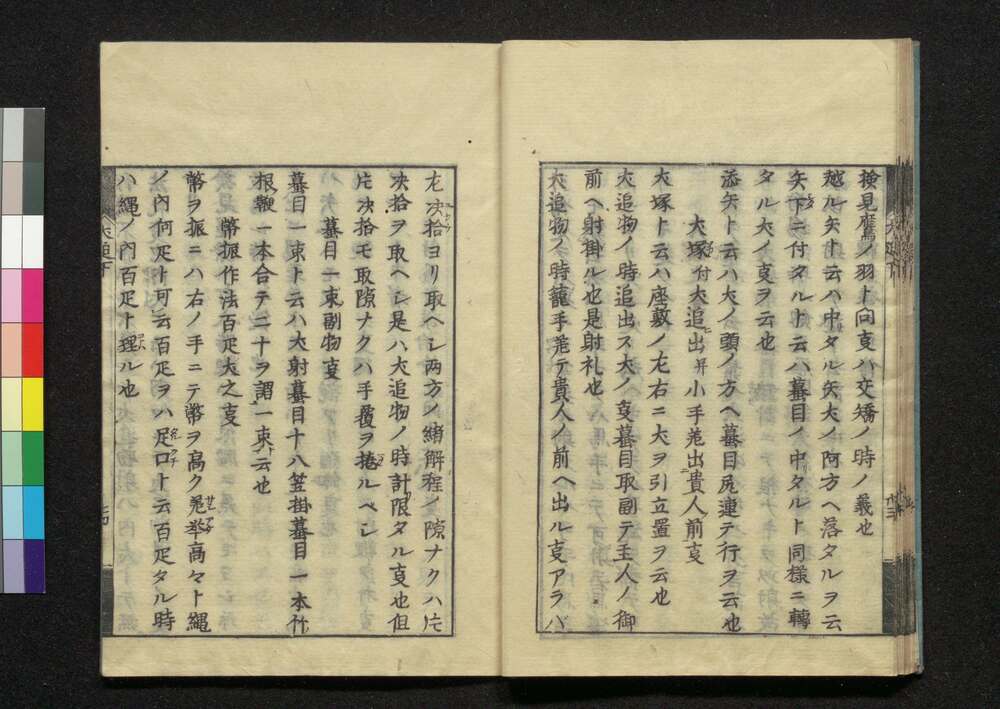 検見鷹ノ羽ト向叓ハ交矯ノ時ノ義也
越ル矢ト云ハ中タル矢犬ノ阿方ヘ落タルヲ云
矢下ニ付タルト云ハ蟇目ノ中タルト同様ニ轉
タル犬ノ叓ヲ云也
添矢ト云ハ犬ノ頭ノ方ヘ蟇目尻連テ行ヲ云也
犬塚付犬追出并小手差出貴人前叓
犬塚ト云ハ座敷ノ左右ニ犬ヲ引立置ヲ云也
犬追物ノ時追出ス犬ノ叓蟇目取副テ主人ノ御
前ヘ射掛ル也是射礼也
犬追物ノ時籠手差テ貴人ノ前ヘ出ル叓アラバ
左决拾ヨリ取ヘシ両方ノ緒解程ノ隙ナクハ片
决拾ヲ取ヘシ是ハ犬追物ノ時計限タル叓也但
片决拾モ取隙ナクハ手覆ヲ捲ルベシ
蟇目一束副物叓
蟇目一束ト云ハ犬射蟇目十八笠掛蟇目一本竹
根鞭一本合テ二十ヲ謂一束云也
幣振作法百疋犬之叓
幣ヲ振ニハ右ノ手ニテ幣ヲ高ク差挙高々ト縄
ノ内何疋ト可云百疋ヲハ疋口ト云百疋タル時
ハ縄ノ内百疋ト理ル也
犬追下